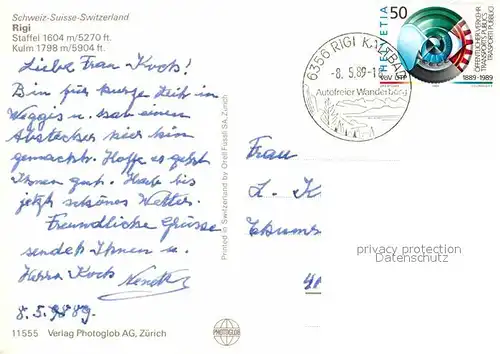 Schweiz-Suisse-Switzerland
Rigi
Staffel 1604 m/5270 ft.
Kulm 1798 m/5904 ft.
Liebe Frau Koch!
Bin für kurze Zeit in
Weggis u. hab einen
Abstecher hier hin
gemacht. Hoffe es geht
Ihnen gut. Habe bis
jetzt schönes Wetter.
Freundliche Grüsse
sendet Ihnen u.
Herrn Koch
8.5.1989.
11555 Verlag Photoglob AG, Zürich
Printed in Switzerland by Orell Füssli SA, Zürich
PHOTOGLOB
6356 RIGI KALTBAD
-8.5.89-1
Autofreier Wanderberg
HELVETIA 50
ÖFFENTLICHER VERKEHR
TRANSPORTS PUBLICS
TRASPORTI PUBBLICI
VöV UTP
1889-1989
Frau
L. K
privacy protection
Datenschutz